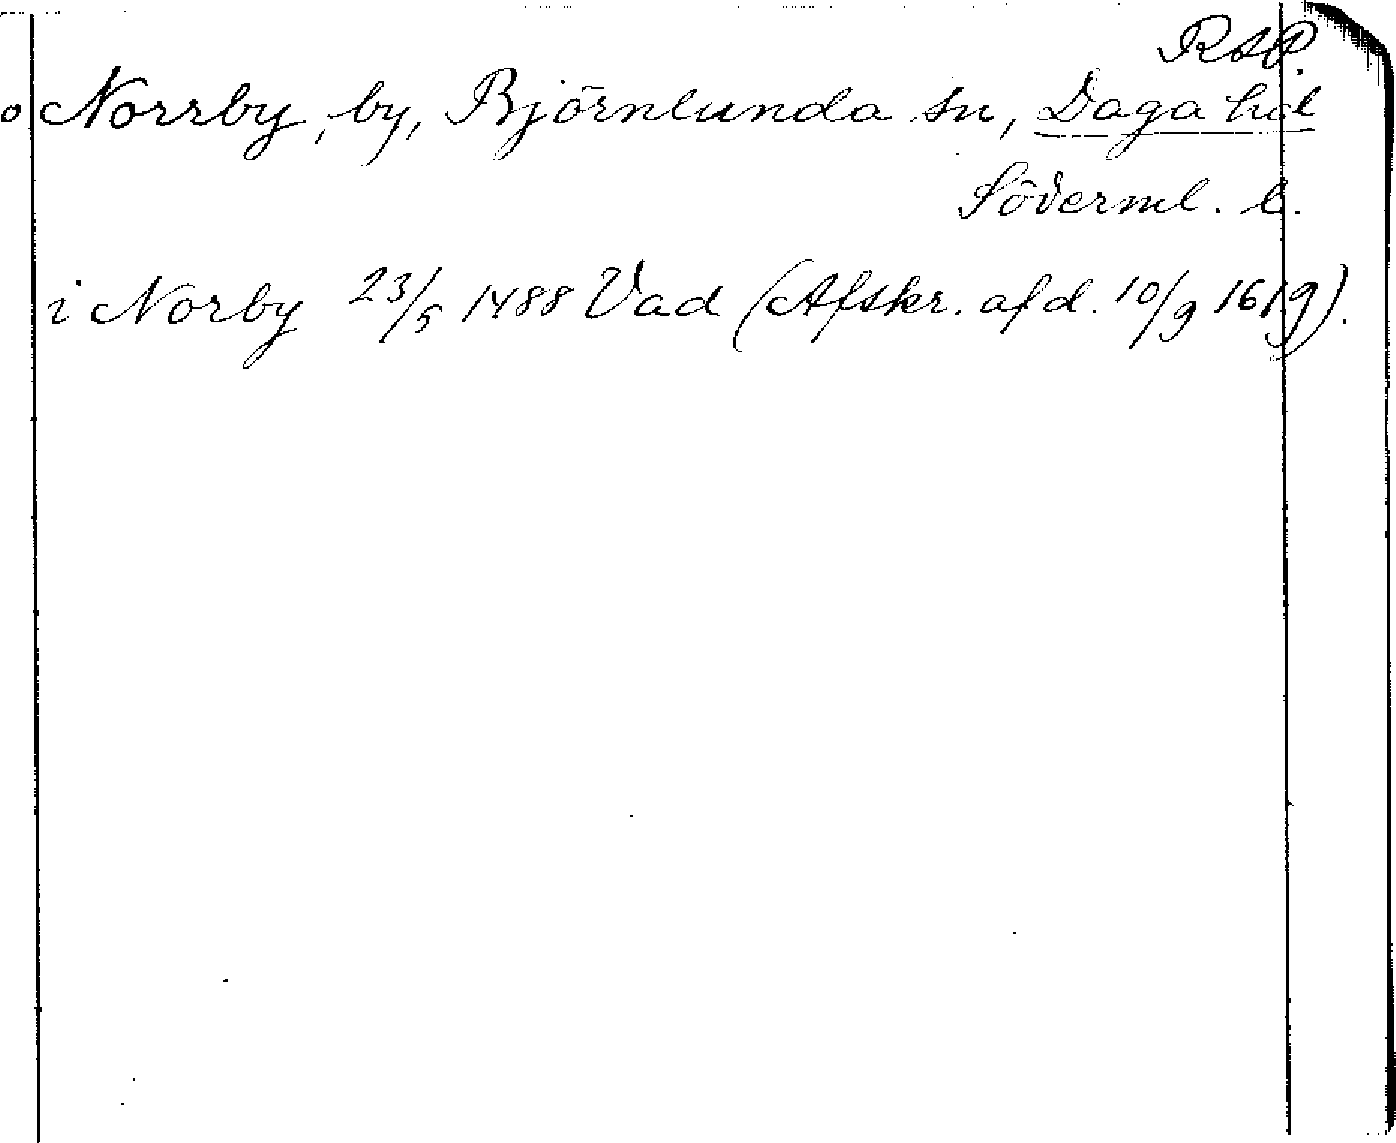 RAP.
o Norrby, by, Björnlunda sn, Daga hd
Söderml. l.
i Norby 23/5 1488 Vad (Afskr. af d. 10/9 1619).